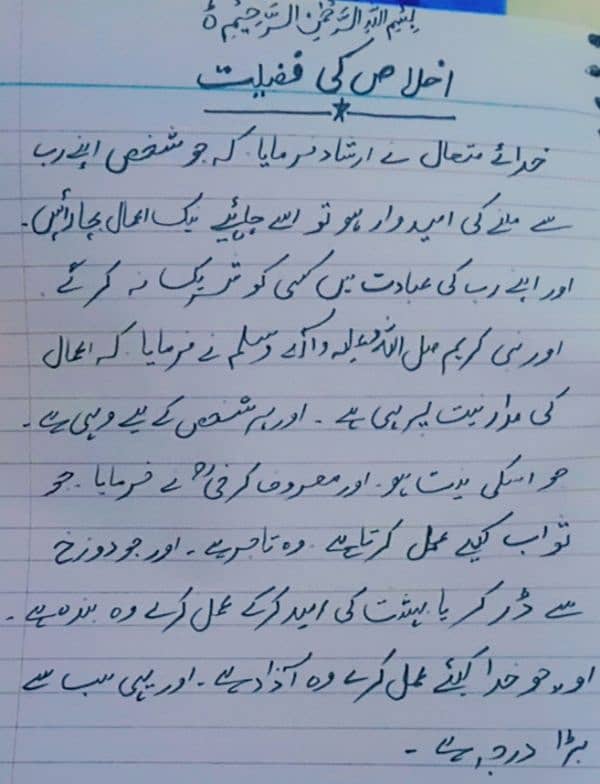 بسم اللہ الرحمٰن الرحیم ۵
اخلاص کی فضیلت
خدائے متعال نے ارشاد فرمایا۔ کہ جو شخص اپنے رب
سے ملنے کی امیدوار ہو تو اسے چاہیے نیک اعمال بجا لائیں۔
اور اپنے رب کی عبادت میں کسی کو شریک نہ کرئے۔
اور نبی کریم صلی اللہ علیہ وآلہ وسلم نے فرمایا۔ کہ اعمال
کی مدار نیت پر ہی ہے۔ اور ہر شخص کے لیے وہی ہے۔
جو اسکی نیت ہو۔ اور معروف کرخی رح نے فرمایا۔ جو
ثواب کیلیے عمل کرتا ہے۔ وہ تاجر ہے۔ اور جو دوزخ
سے ڈر کر یا بہشت کی امید کرکے عمل کرے وہ بندہ ہے۔
اور جو خدا کیلئے عمل کرے وہ آذاد ہے۔ اور یہی سب سے
بڑا درجہ ہے۔